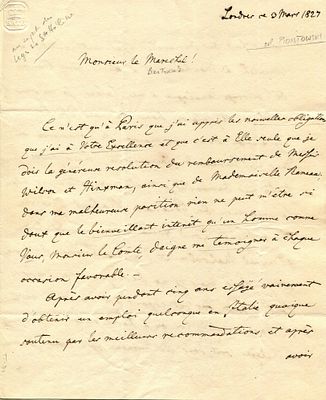 Londres ce 3 Mars 1827
au sujet du
legs de Ste Hélène
col PIONTOWSKI
Monsieur le Marechal!
Bertrand
Ce n'est qu'à Paris que j'ai appris les nouvelles obligations
que j'ai à Votre Excellence et que c'est à Elle seule que je
dois la généreuse resolution du remboursement de Messrs
Wilson et Hinxman, ainsi que de Mademoiselle
dans ma malheureuse position rien ne peut m'être si
doux que le bienveillant interêt qu'un homme comme
Vous, Monsieur le Comte, daigne me temoigner à chaque
occasion favorable. —
Après avoir pendant cinq ans essayé vainement
d'obtenir un emploi quelconque en Italie quoique
soutenu par les meilleures recommandations, et après
avoir